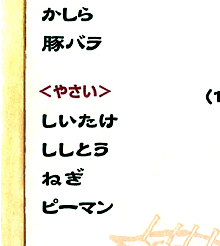 かしら
豚バラ
<やさい>
(1
しいたけ
ししとう
ねぎ
ピーマン